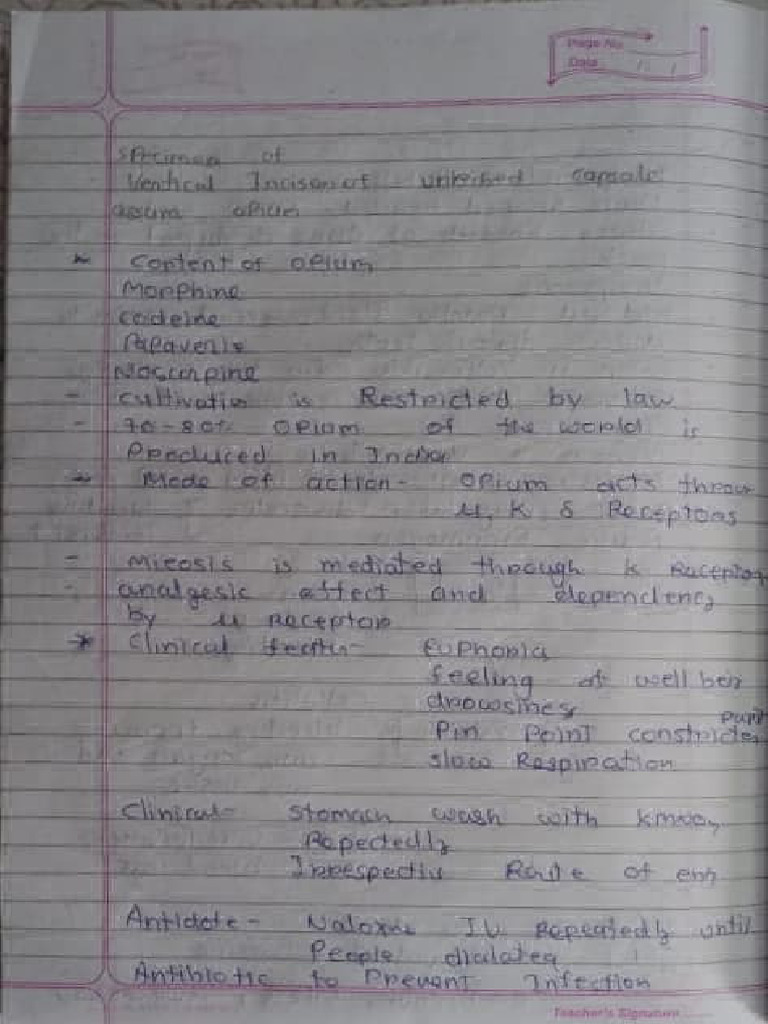 Page No.
Date
Specimen of
Ventical Incison of unreised capsule
opium
* Content of opium
Morphine
codeine
Papaverie
Noscurpine
- cultivatio is Restricted by law
- 70-80% opium of the world is
Produced in India
* Mode of action - opium acts throu
μ, K δ Receptors
- Mieosis is mediated through K Receptor
- analgesic effect and dependency
by μ Receptor
* Clinical featu - Euphoria
feeling of well bei
drowsines
Pin Point constricted pupi
slow Respiration
Clinical - Stomach wash with kmno4
Repectedly
Irrespectiv Route of
Antidote - Naloxone IV Repeatedly until
People dialated
Antibiotic to Prevent Infection
Teacher's Signature